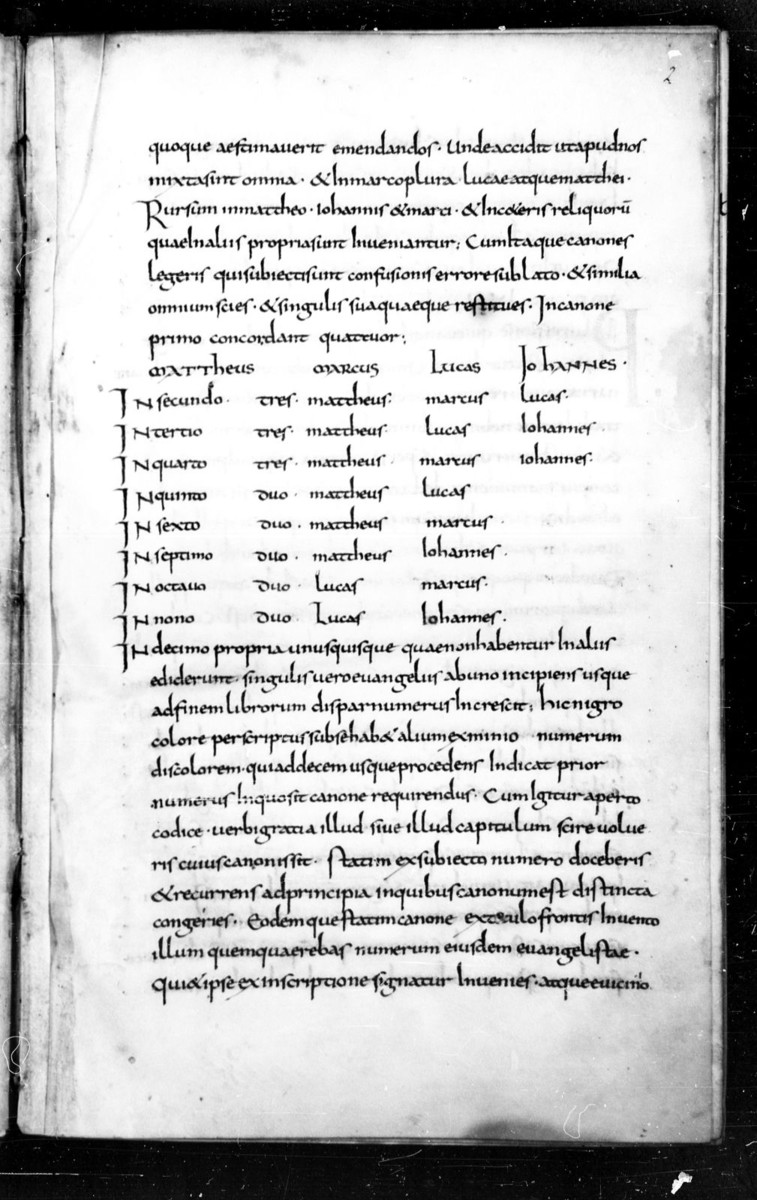 2
quoque aestimaverit emendandos. Unde accidit ut apud nos
mixta sint omnia. & In marco plura lucae atque matthei.
Rursum in mattheo. iohannis & marci. & In c&eris reliquorū
quae In aliis propria sunt Inveniantur; Cum Itaque canones
legeris qui subiecti sunt confusionis errore sublato. & similia
omnium scies. & singulis sua quaeque restitues. In canone
primo concordant quatuor;
MATTheus MARCUS LUCAS IohANNES.
IN secundo. tres. mattheus. marcus Lucas.
IN tertio tres. mattheus Lucas Iohannes.
IN quarto tres. mattheus. marcus iohannes.
IN quinto duo. mattheus Lucas
IN sexto duo. mattheus marcus.
IN septimo duo. mattheus Iohannes.
IN octavo duo. Lucas marcus.
IN nono duo. Lucas Iohannes.
IN decimo propria unusquisque quae non habentur In aliis
ediderunt. singulis vero evangeliis ab uno incipiens usque
ad finem librorum dispar numerus Increscit; hic nigro
colore perscriptus sub se hab& alium ex minio numerum
discolorem. qui ad decem usque procedens Indicat prior
numerus In quo sit canone requirendus. Cum Igitur aperto
codice. verbi gratia illud. sive illud capitulum scire volue
ris cuius canonis sit. statim ex subiecto numero doceberis
& recurrens ad principia in quibus canonum est distincta
congeries. Eodemque statim canone ex titulo frontis Invento
illum quem quaerebas numerum eiusdem evangelistae.
Qui & ipse ex inscriptione signatur Invenies. atque e vicino